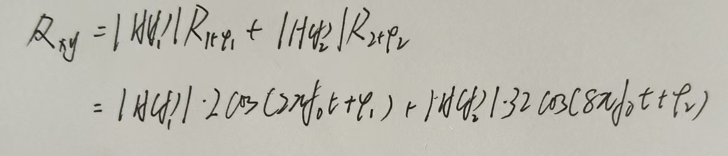 R_{xy} = |H(f_1)| R_{1+φ_1} + |H(f_2)| R_{2+φ_2}
= |H(f_1)| · 2 cos(2πf_0t + φ_1) + |H(f_2)| · 32 cos(8πf_0t + φ_2)